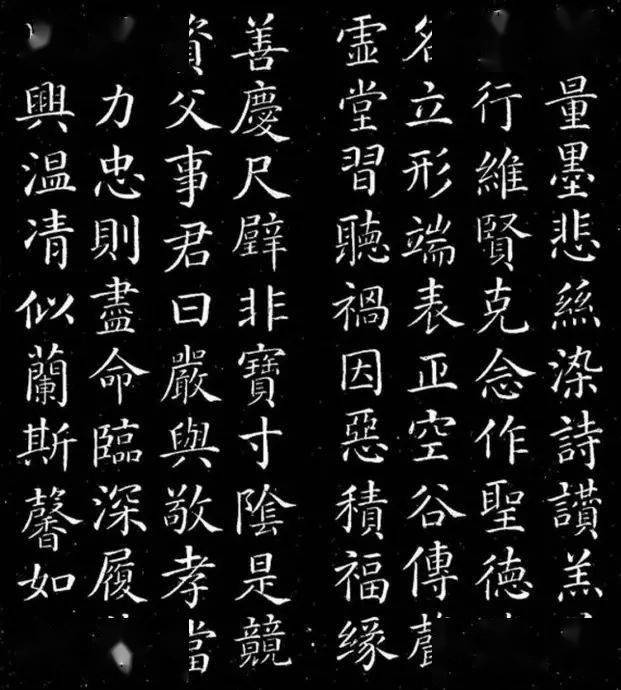 量墨悲絲染詩讚羔
行維賢克念作聖德
名立形端表正空谷傳聲
虛堂習聽禍因惡積福緣
善慶尺璧非寶寸陰是競
資父事君曰嚴與敬孝當
力忠則盡命臨深履
興温凊似蘭斯馨如